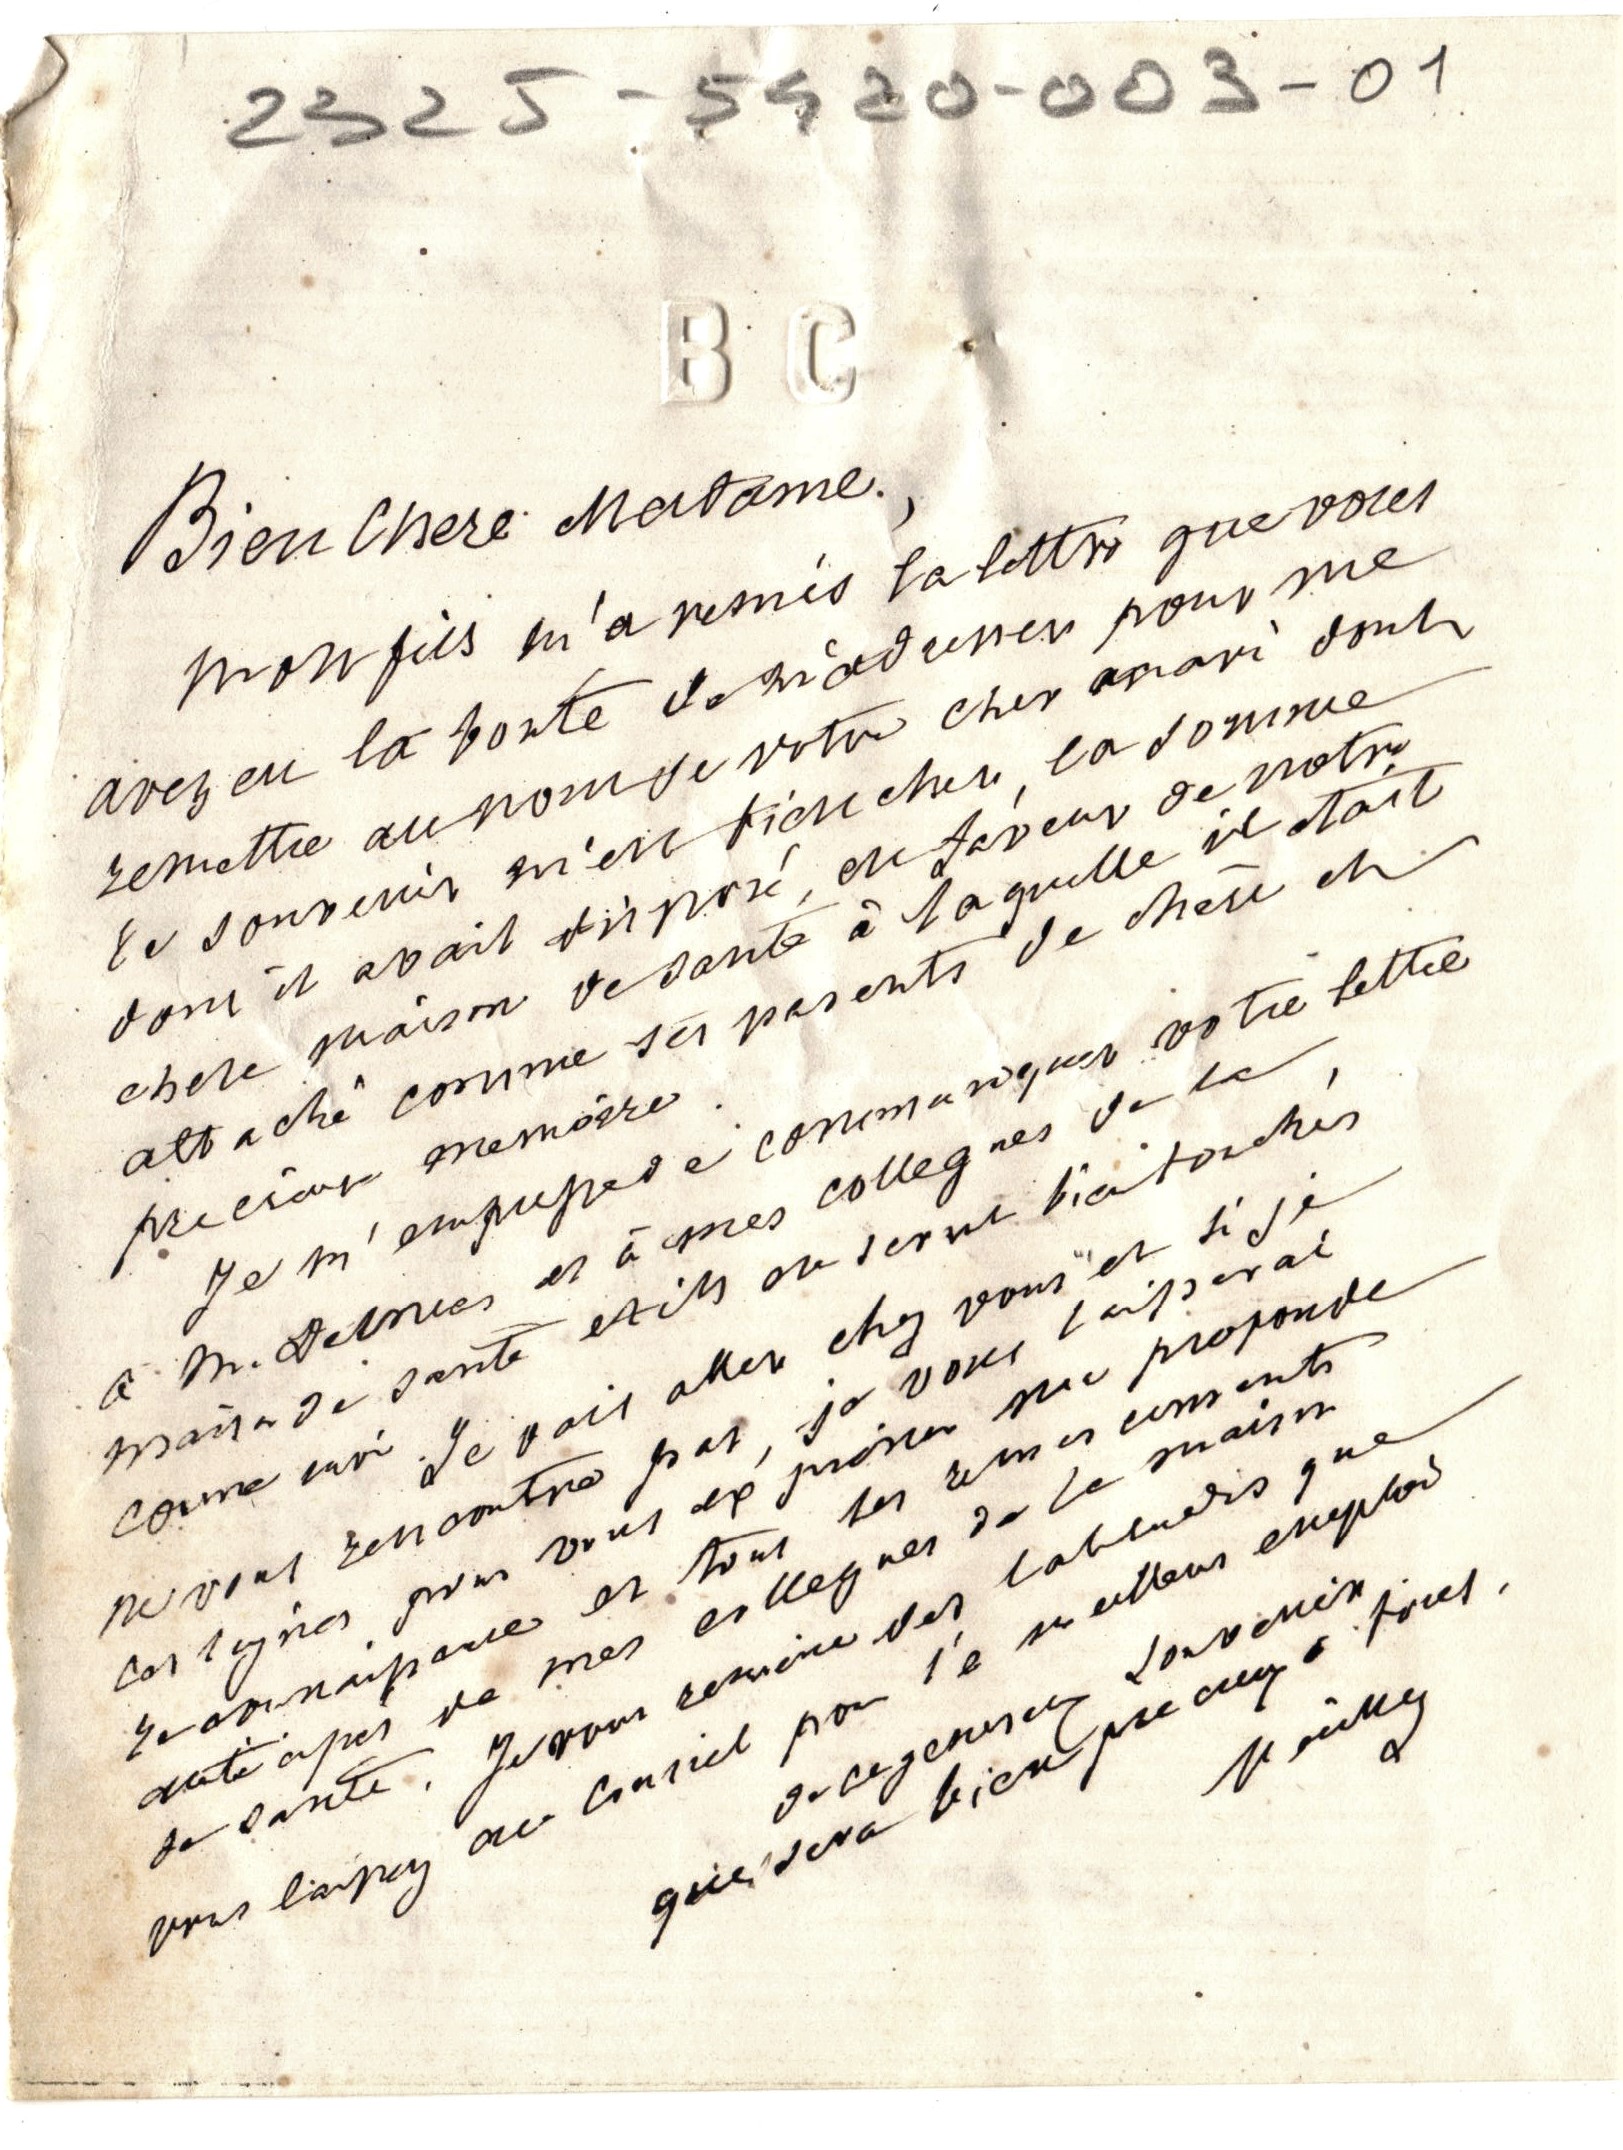 2325-5920-003-01
B C
Bien chere Madame,
mon fils m'a remis la lettre que vous
avez eu la bonté de m'adresser pour me
remettre au nom de votre cher mari dont
le souvenir m'est bien cher, la somme
dont il avait disposé, en faveur de notre
chere maison de santé à laquelle il était
attaché comme ses parents de chere et
precieuse memoire.
Je m'empresse de communiquer votre lettre
à M. et à mes collegues de la
maison de santé et ils en seront bien touchés,
comme moi. Je vais aller chez vous et si je
ne vous rencontre pas, je vous laisserai
ces lignes pour vous exprimer ma profonde
reconnaissance et tous les remerciements
de mes collegues de la maison
de santé. Je vous remercie des que
vous laissez au conseil pour le meilleur emploi
de ce genereux souvenir
qui sera bien precieux à tous.